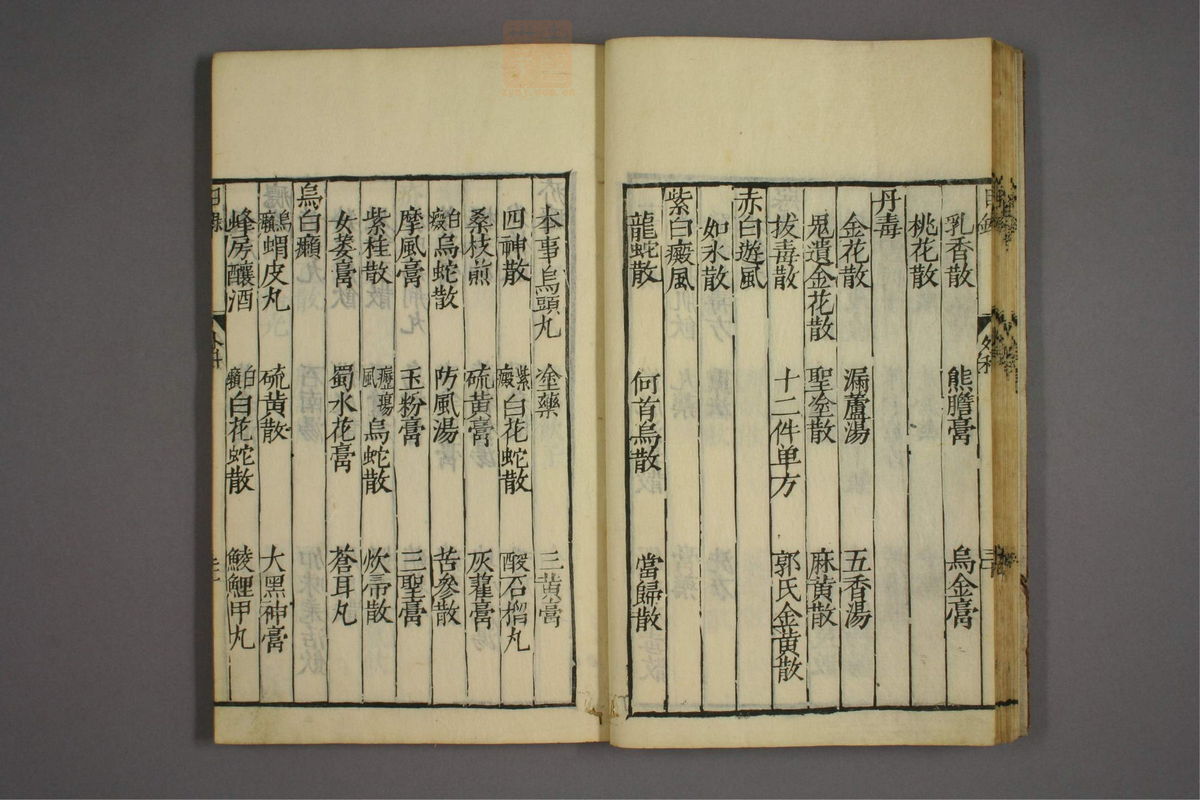 乳香散 熊膽膏 烏金膏
桃花散
丹毒
金花散 漏蘆湯 五香湯
鬼遺金花散 聖塗散 麻黄散
拔毒散 十二件单方 郭氏金黄散
赤白遊風
如氷散
紫白癜風
龍蛇散 何首烏散 當歸散
本事烏頭丸 塗藥 三黄膏
四神散 紫癜白花蛇散 酸石榴丸
桑枝煎 硫黄膏 灰藋膏
白癜烏蛇散 防風湯 苦參散
摩風膏 玉粉膏 三聖膏
紫桂散 癧瘍風烏蛇散 炊帚散
女萎膏 蜀水花膏 蒼耳丸
烏白癩
烏癩蝟皮丸 硫黄散 大黑神膏
蜂房釀酒 白癩白花蛇散 鯪鯉甲丸
目錄 外科